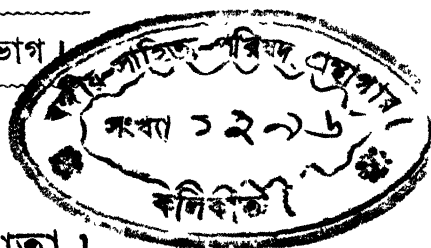 ভাগ।
বঙ্গীয়-সাহিত্য-পরিষদ গ্রন্থাগার
সংখ্যা ১২৯৬
কলিকাতা